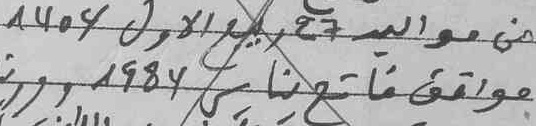 من مواليد 27 ربيع الاول 1404
موافق فاتح يناير 1984 و